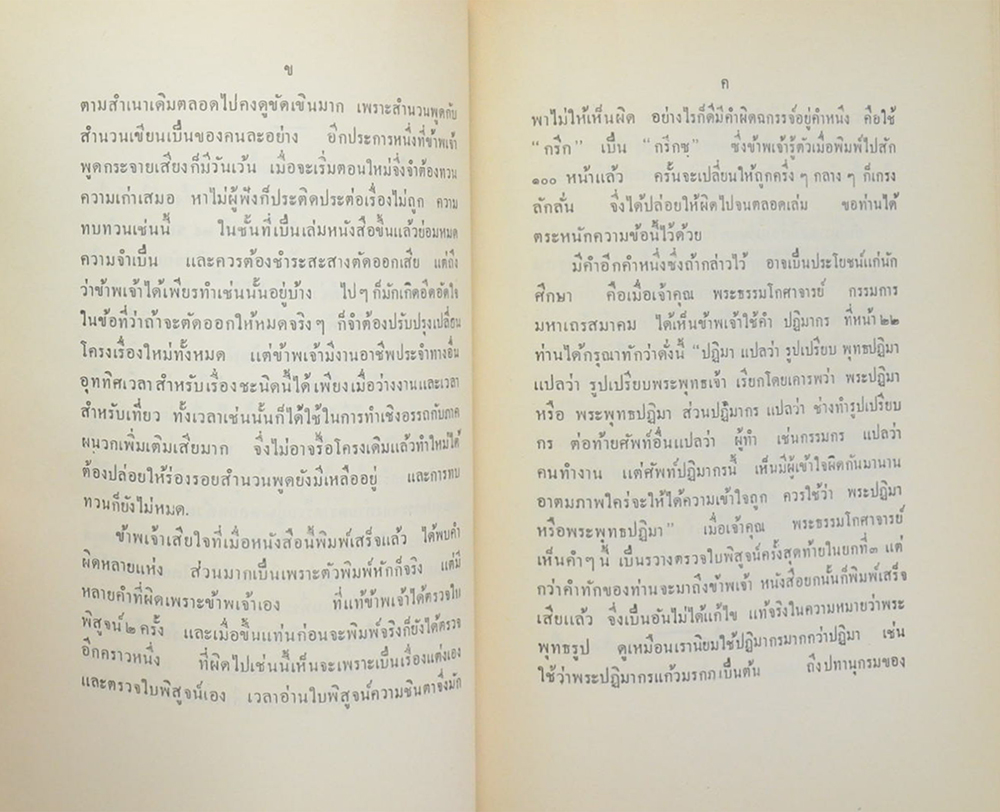 ข
ตามสำเนาเดิมตลอดไปคงดูขัดเขินมาก เพราะสำนวนพูดกับ
สำนวนเขียนเป็นของคนละอย่าง อีกประการหนึ่งที่ข้าพเจ้า
พูดกระจายเสียงก็มีวันเว้น เมื่อจะเริ่มตอนใหม่จึงจำต้องทวน
ความเก่าเสมอ หาไม่ผู้ฟังก็ประติดประต่อเรื่องไม่ถูก ความ
ทบทวนเช่นนี้ ในชั้นที่เป็นเล่มหนังสือขึ้นแล้วย่อมหมด
ความจำเป็น และควรต้องชำระสะสางตัดออกเสีย แต่ถึง
ว่าข้าพเจ้าได้เพียรทำเช่นนั้นอยู่บ้าง ไปๆ ก็มักเกิดอึดอัดใจ
ในข้อที่ว่าถ้าจะตัดออกให้หมดจริงๆ ก็จำต้องปรับปรุงเปลี่ยน
โครงเรื่องใหม่ทั้งหมด แต่ข้าพเจ้ามีงานอาชีพประจำทางอื่น
อุททิศเวลาสำหรับเรื่องชะนิดนี้ได้ เพียงเมื่อว่างงานและเวลา
สำหรับเที่ยว ทั้งเวลาเช่นนั้นก็ได้ใช้ในการทำเชิงอรรถกับภาค
ผนวกเพิ่มเติมเสียมาก จึงไม่อาจรื้อโครงเดิมแล้วทำใหม่ได้
ต้องปล่อยให้ร่องรอยสำนวนพูดยังมีเหลืออยู่ และการทบ
ทวนก็ยังไม่หมด.
ข้าพเจ้าเสียใจที่เมื่อหนังสือนี้พิมพ์เสร็จแล้ว ได้พบคำ
ผิดหลายแห่ง ส่วนมากเป็นเพราะตัวพิมพ์หักก็จริง แต่มี
หลายคำที่ผิดเพราะข้าพเจ้าเอง ที่แท้ข้าพเจ้าได้ตรวจใบ
พิสูจน์ ๒ ครั้ง และเมื่อขึ้นแท่นก่อนจะพิมพ์จริงก็ยังได้ตรวจ
อีกคราวหนึ่ง ที่ผิดไปเช่นนี้เห็นจะเพราะเป็นเรื่องแต่งเอง
และตรวจใบพิสูจน์เอง เวลาอ่านใบพิสูจน์ความชินตาจึงมัก
ค
พาไม่ให้เห็นผิด อย่างไรก็ดีมีคำผิดฉกรรจ์อยู่คำหนึ่ง คือใช้
“กรีก” เป็น “กรีกซฺ” ซึ่งข้าพเจ้ารู้ตัวเมื่อพิมพ์ไปสัก
๑๐๐ หน้าแล้ว ครั้นจะเปลี่ยนให้ถูกครึ่งๆ กลางๆ ก็เกรง
ลักลั่น จึงได้ปล่อยให้ผิดไปจนตลอดเล่ม ขอท่านได้
ตระหนักความข้อนี้ไว้ด้วย
มีคำอีกคำหนึ่งซึ่งถ้ากล่าวไว้ อาจเป็นประโยชน์แก่นัก
ศึกษา คือเมื่อเจ้าคุณ พระธรรมโกศาจารย์ กรรมการ
มหาเถรสมาคม ได้เห็นข้าพเจ้าใช้คำ ปฏิมากร ที่หน้า ๒๒
ท่านได้กรุณาทักว่าดังนี้ “ปฏิมา แปลว่า รูปเปรียบ พุทธปฏิมา
แปลว่า รูปเปรียบพระพุทธเจ้า เรียกโดยเคารพว่า พระปฏิมา
หรือ พระพุทธปฏิมา ส่วนปฏิมากร แปลว่า ช่างทำรูปเปรียบ
กร ต่อท้ายศัพท์อื่นแปลว่า ผู้ทำ เช่นกรรมกร แปลว่า
คนทำงาน แต่ศัพท์ปฏิมากรนี้ เห็นมีผู้เข้าใจผิดกันมานาน
อาตมภาพใคร่จะให้ได้ความเข้าใจถูก ควรใช้ว่า พระปฏิมา
หรือพระพุทธปฏิมา” เมื่อเจ้าคุณ พระธรรมโกศาจารย์
เห็นคำๆ นี้ เป็นรวางตรวจใบพิสูจน์ครั้งสุดท้ายในยกที่ ๓ แต่
กว่าคำทักของท่านจะมาถึงข้าพเจ้า หนังสือยกนั้นก็พิมพ์เสร็จ
เสียแล้ว จึงเป็นอันไม่ได้แก้ไข แท้จริงในความหมายว่าพระ
พุทธรูป ดูเหมือนเรานิยมใช้ปฏิมากรมากกว่าปฏิมา เช่น
ใช้ว่าพระปฏิมากรแก้วมรกฏเป็นต้น ถึงปทานุกรมของ